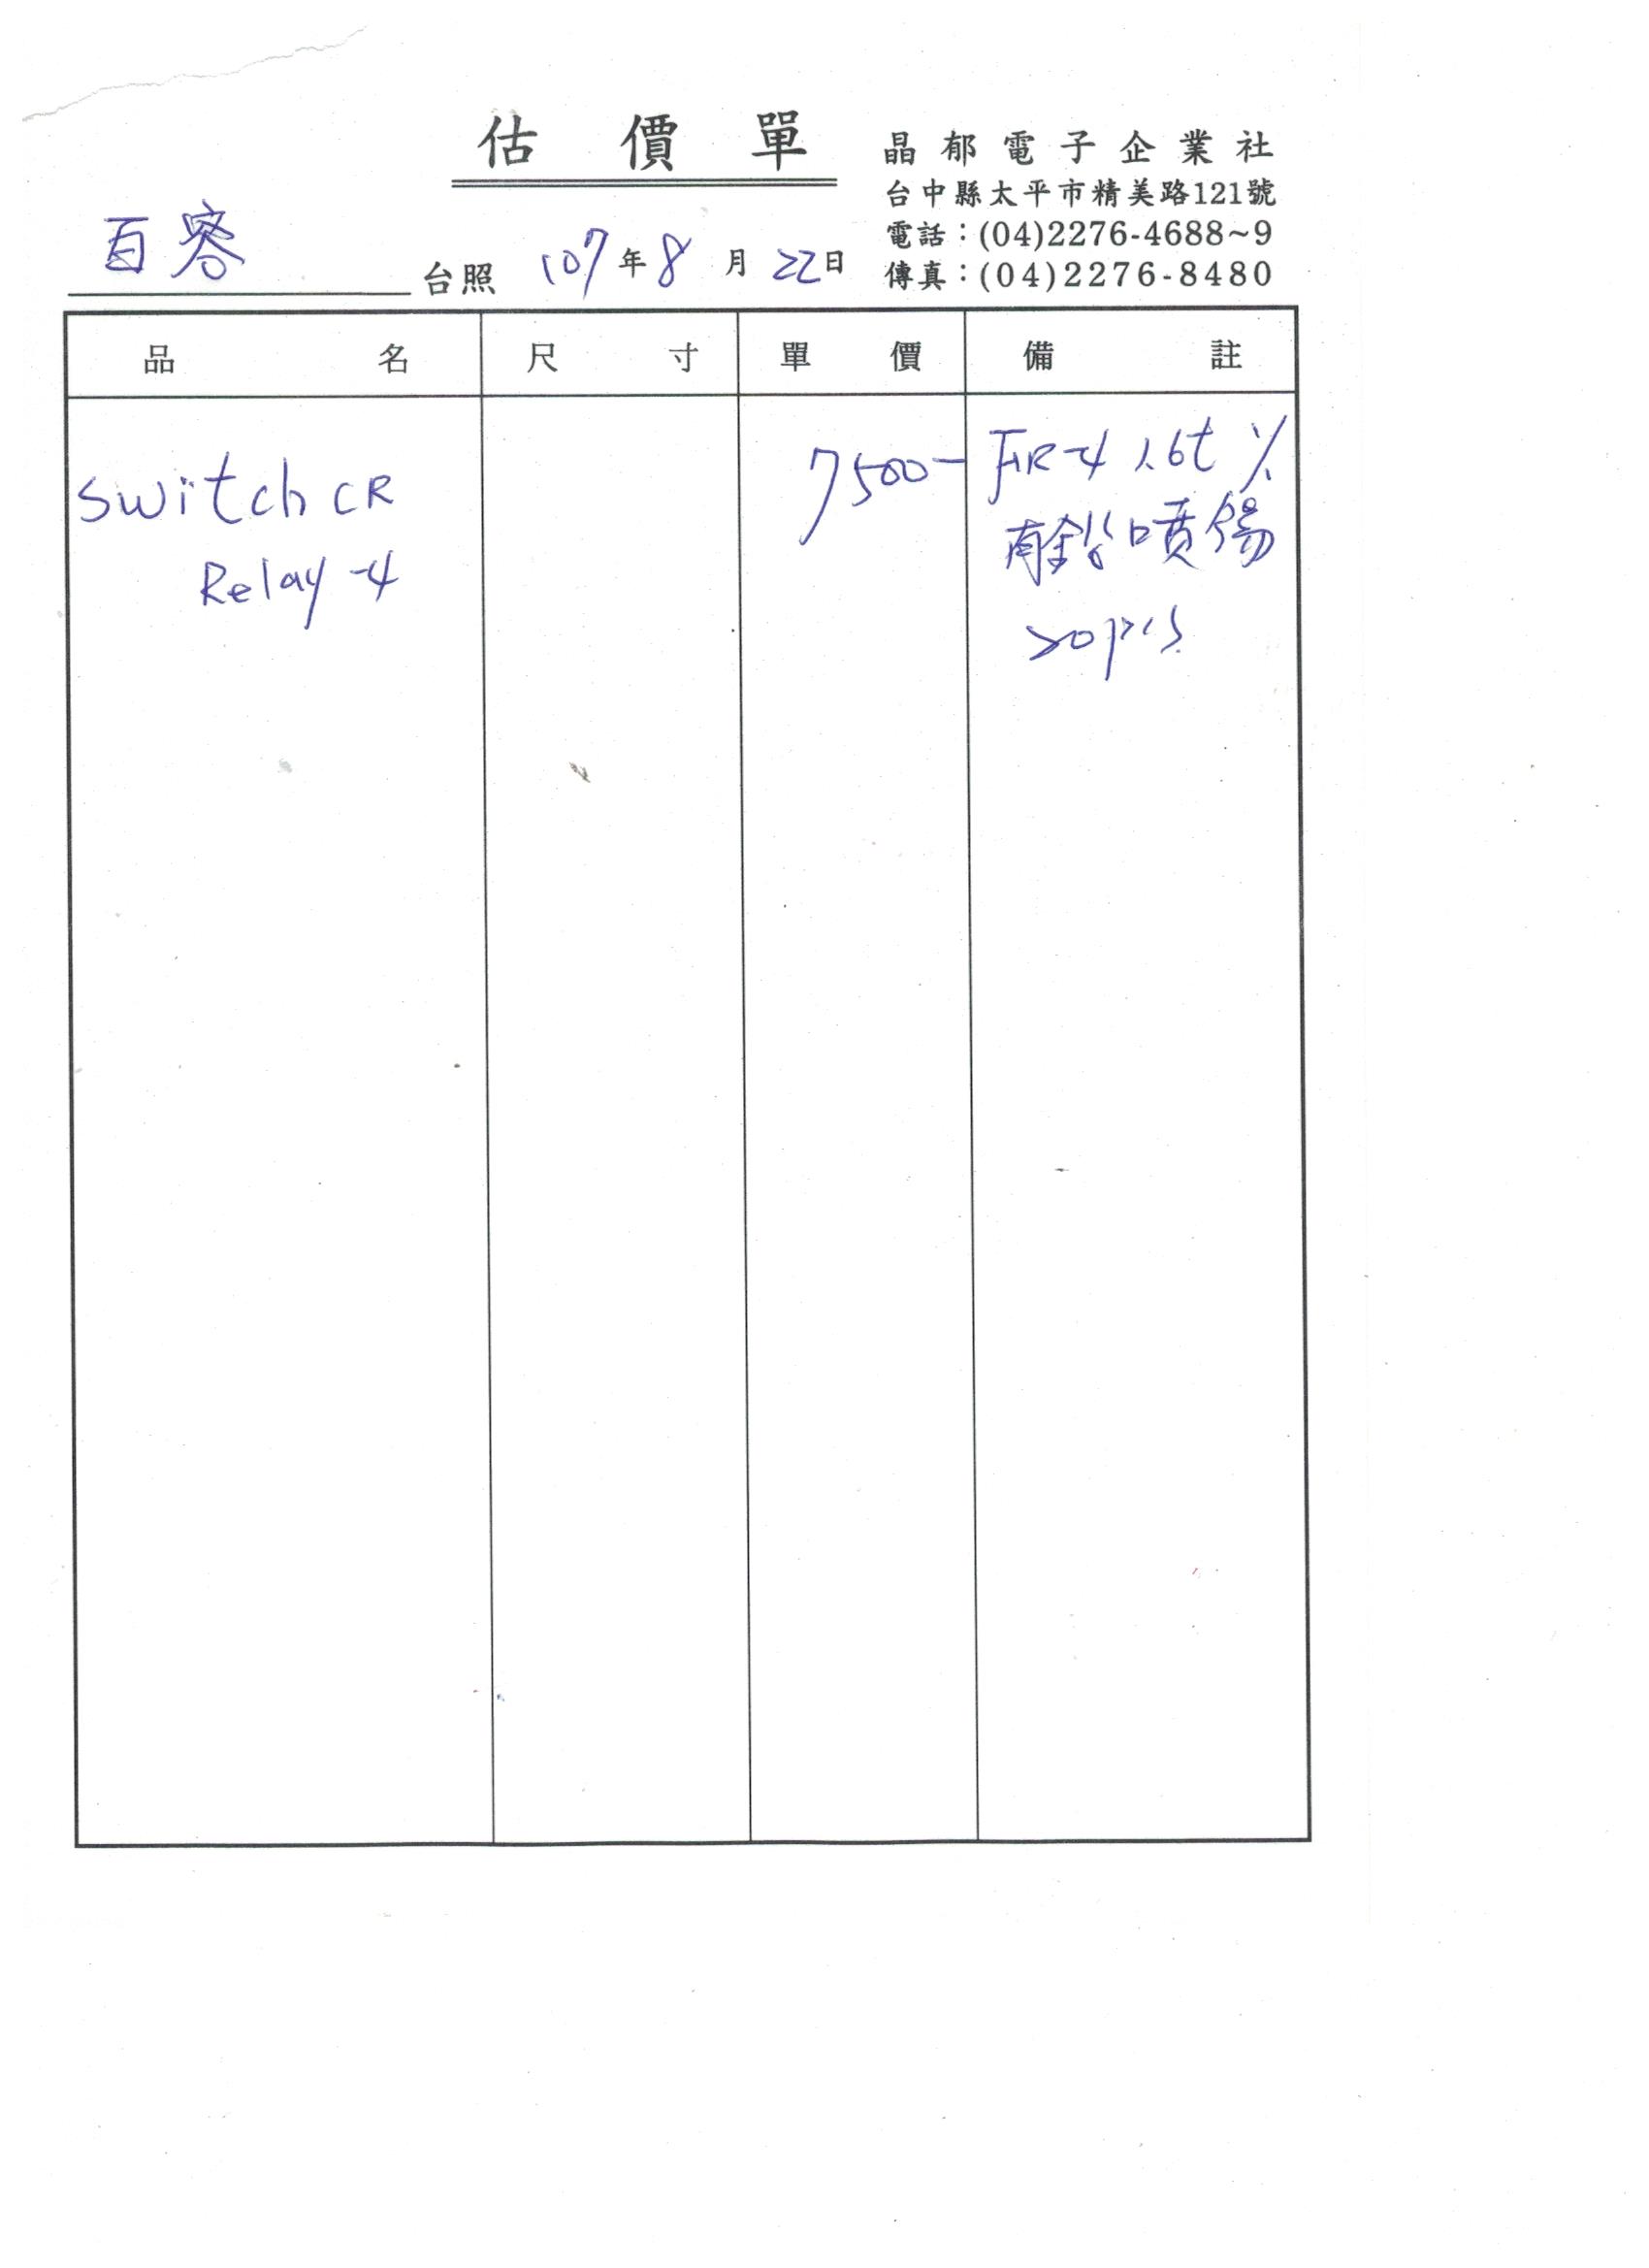 估價單
晶郁電子企業社
台中縣太平市精美路121號
電話：(04)2276-4688~9
傳真：(04)2276-8480
百容 台照 107年8月22日
品名 尺寸 單價 備註
Switch CR 7500- FR-4 1.6t 1/1
Relay-4 有鉛噴錫
20pcs